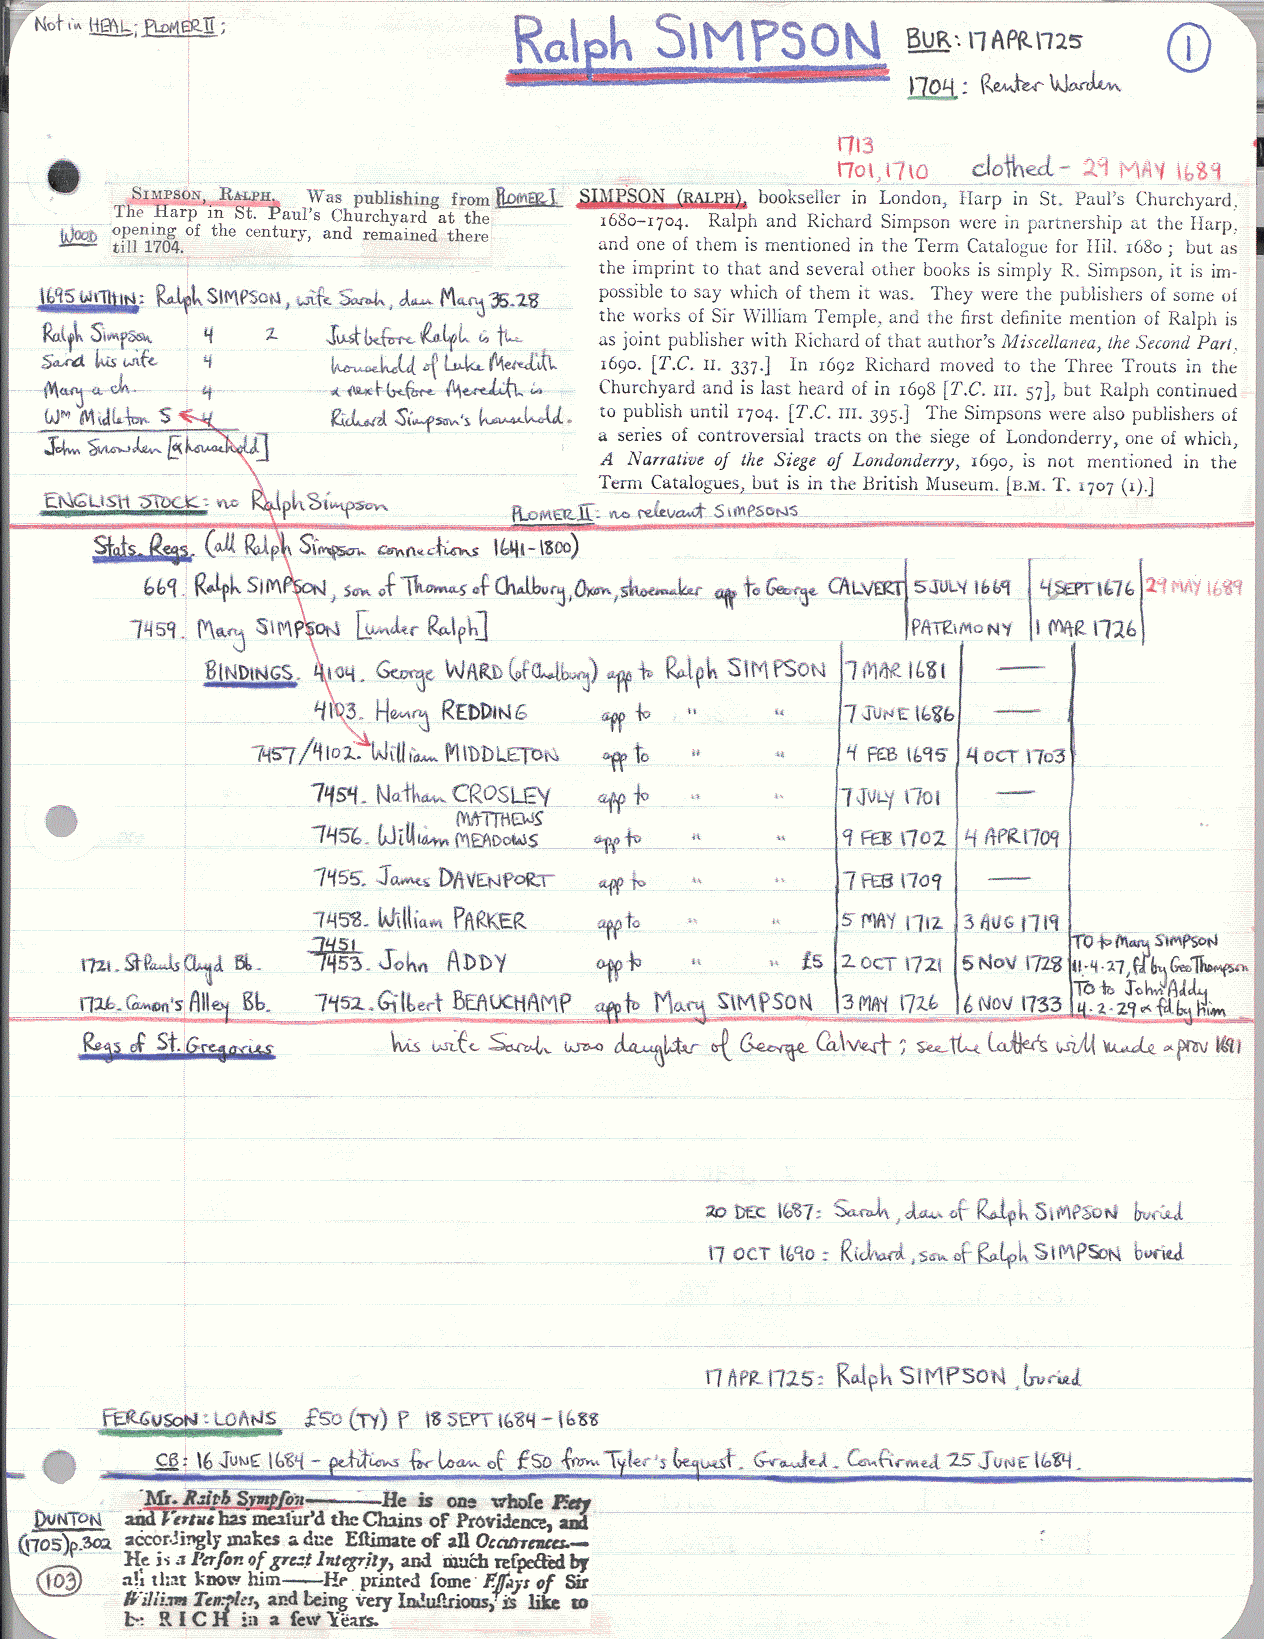 Not in HEAL; PLOMER II;
Ralph SIMPSON
BUR: 17 APR 1725
1
1704: Renter Warden
1713
1701, 1710
clothed - 29 MAY 1689
SIMPSON, RALPH. Was publishing from
The Harp in St. Paul's Churchyard at the
opening of the century, and remained there
till 1704.
WOOD
PLOMER I
SIMPSON (RALPH), bookseller in London, Harp in St. Paul's Churchyard,
1680-1704. Ralph and Richard Simpson were in partnership at the Harp,
and one of them is mentioned in the Term Catalogue for Hil. 1680; but as
the imprint to that and several other books is simply R. Simpson, it is im-
possible to say which of them it was. They were the publishers of some of
the works of Sir William Temple, and the first definite mention of Ralph is
as joint publisher with Richard of that author's Miscellanea, the Second Part,
1690. [T.C. II. 337.] In 1692 Richard moved to the Three Trouts in the
Churchyard and is last heard of in 1698 [T.C. III. 57], but Ralph continued
to publish until 1704. [T.C. III. 395.] The Simpsons were also publishers of
a series of controversial tracts on the siege of Londonderry, one of which,
A Narrative of the Siege of Londonderry, 1690, is not mentioned in the
Term Catalogues, but is in the British Museum. [B.M. T. 1707 (1).]
1695 WITHIN: Ralph SIMPSON, wife Sarah, dau Mary 35.28
Ralph Simpson 4 2 Just before Ralph is the
Sarah his wife 4 household of Luke Meredith
Mary a ch. 4 & next before Meredith is
Wm Midleton S 4 Richard Simpson's household.
John Snowden [& household]
ENGLISH STOCK: no Ralph Simpson
PLOMER II: no relevant SIMPSONS
Stats. Regs. (all Ralph Simpson connections 1641-1800)
669. Ralph SIMPSON, son of Thomas of Chalbury, Oxon, shoemaker app to George CALVERT 5 JULY 1669 4 SEPT 1676 29 MAY 1689
7459. Mary SIMPSON [under Ralph] PATRIMONY 1 MAR 1726
BINDINGS. 4104. George WARD (of Chalbury) app to Ralph SIMPSON 7 MAR 1681 —
4103. Henry REDDING app to " " 7 JUNE 1686 —
7457/4102. William MIDDLETON app to " " 4 FEB 1695 4 OCT 1703
7454. Nathan CROSLEY app to " " 7 JULY 1701 —
MATTHEWS
7456. William MEADOWS app to " " 9 FEB 1702 4 APR 1709
7455. James DAVENPORT app to " " 7 FEB 1709 —
7458. William PARKER app to " " 5 MAY 1712 3 AUG 1719
7451 TO to Mary SIMPSON
1721. St Pauls Chyd Bb. 7453. John ADDY app to " " £5 2 OCT 1721 5 NOV 1728 11.4.27, fd by Geo Thompson
TO to John Addy
1726. Canon's Alley Bb. 7452. Gilbert BEAUCHAMP app to Mary SIMPSON 3 MAY 1726 6 NOV 1733 4.2.29 & fd by him
Regs of St. Gregories his wife Sarah was daughter of George Calvert; see the latter's will made & prov 1691
20 DEC 1687: Sarah, dau of Ralph SIMPSON buried
17 OCT 1690: Richard, son of Ralph SIMPSON buried
17 APR 1725: Ralph SIMPSON, buried
FERGUSON: LOANS £50 (TY) P 18 SEPT 1684-1688
CB: 16 JUNE 1684 - petitions for loan of £50 from Tyler's bequest. Granted. Confirmed 25 JUNE 1684.
DUNTON
(1705) p.302
103
Mr. Ralph Sympſon——He is one whoſe Piety
and Vertue has meaſur'd the Chains of Providence, and
accordingly makes a due Eſtimate of all Occurrences.—
He is a Perſon of great Integrity, and much reſpected by
all that know him——He printed ſome Eſſays of Sir
William Temples, and being very Induſtrious, is like to
be RICH in a few Years.